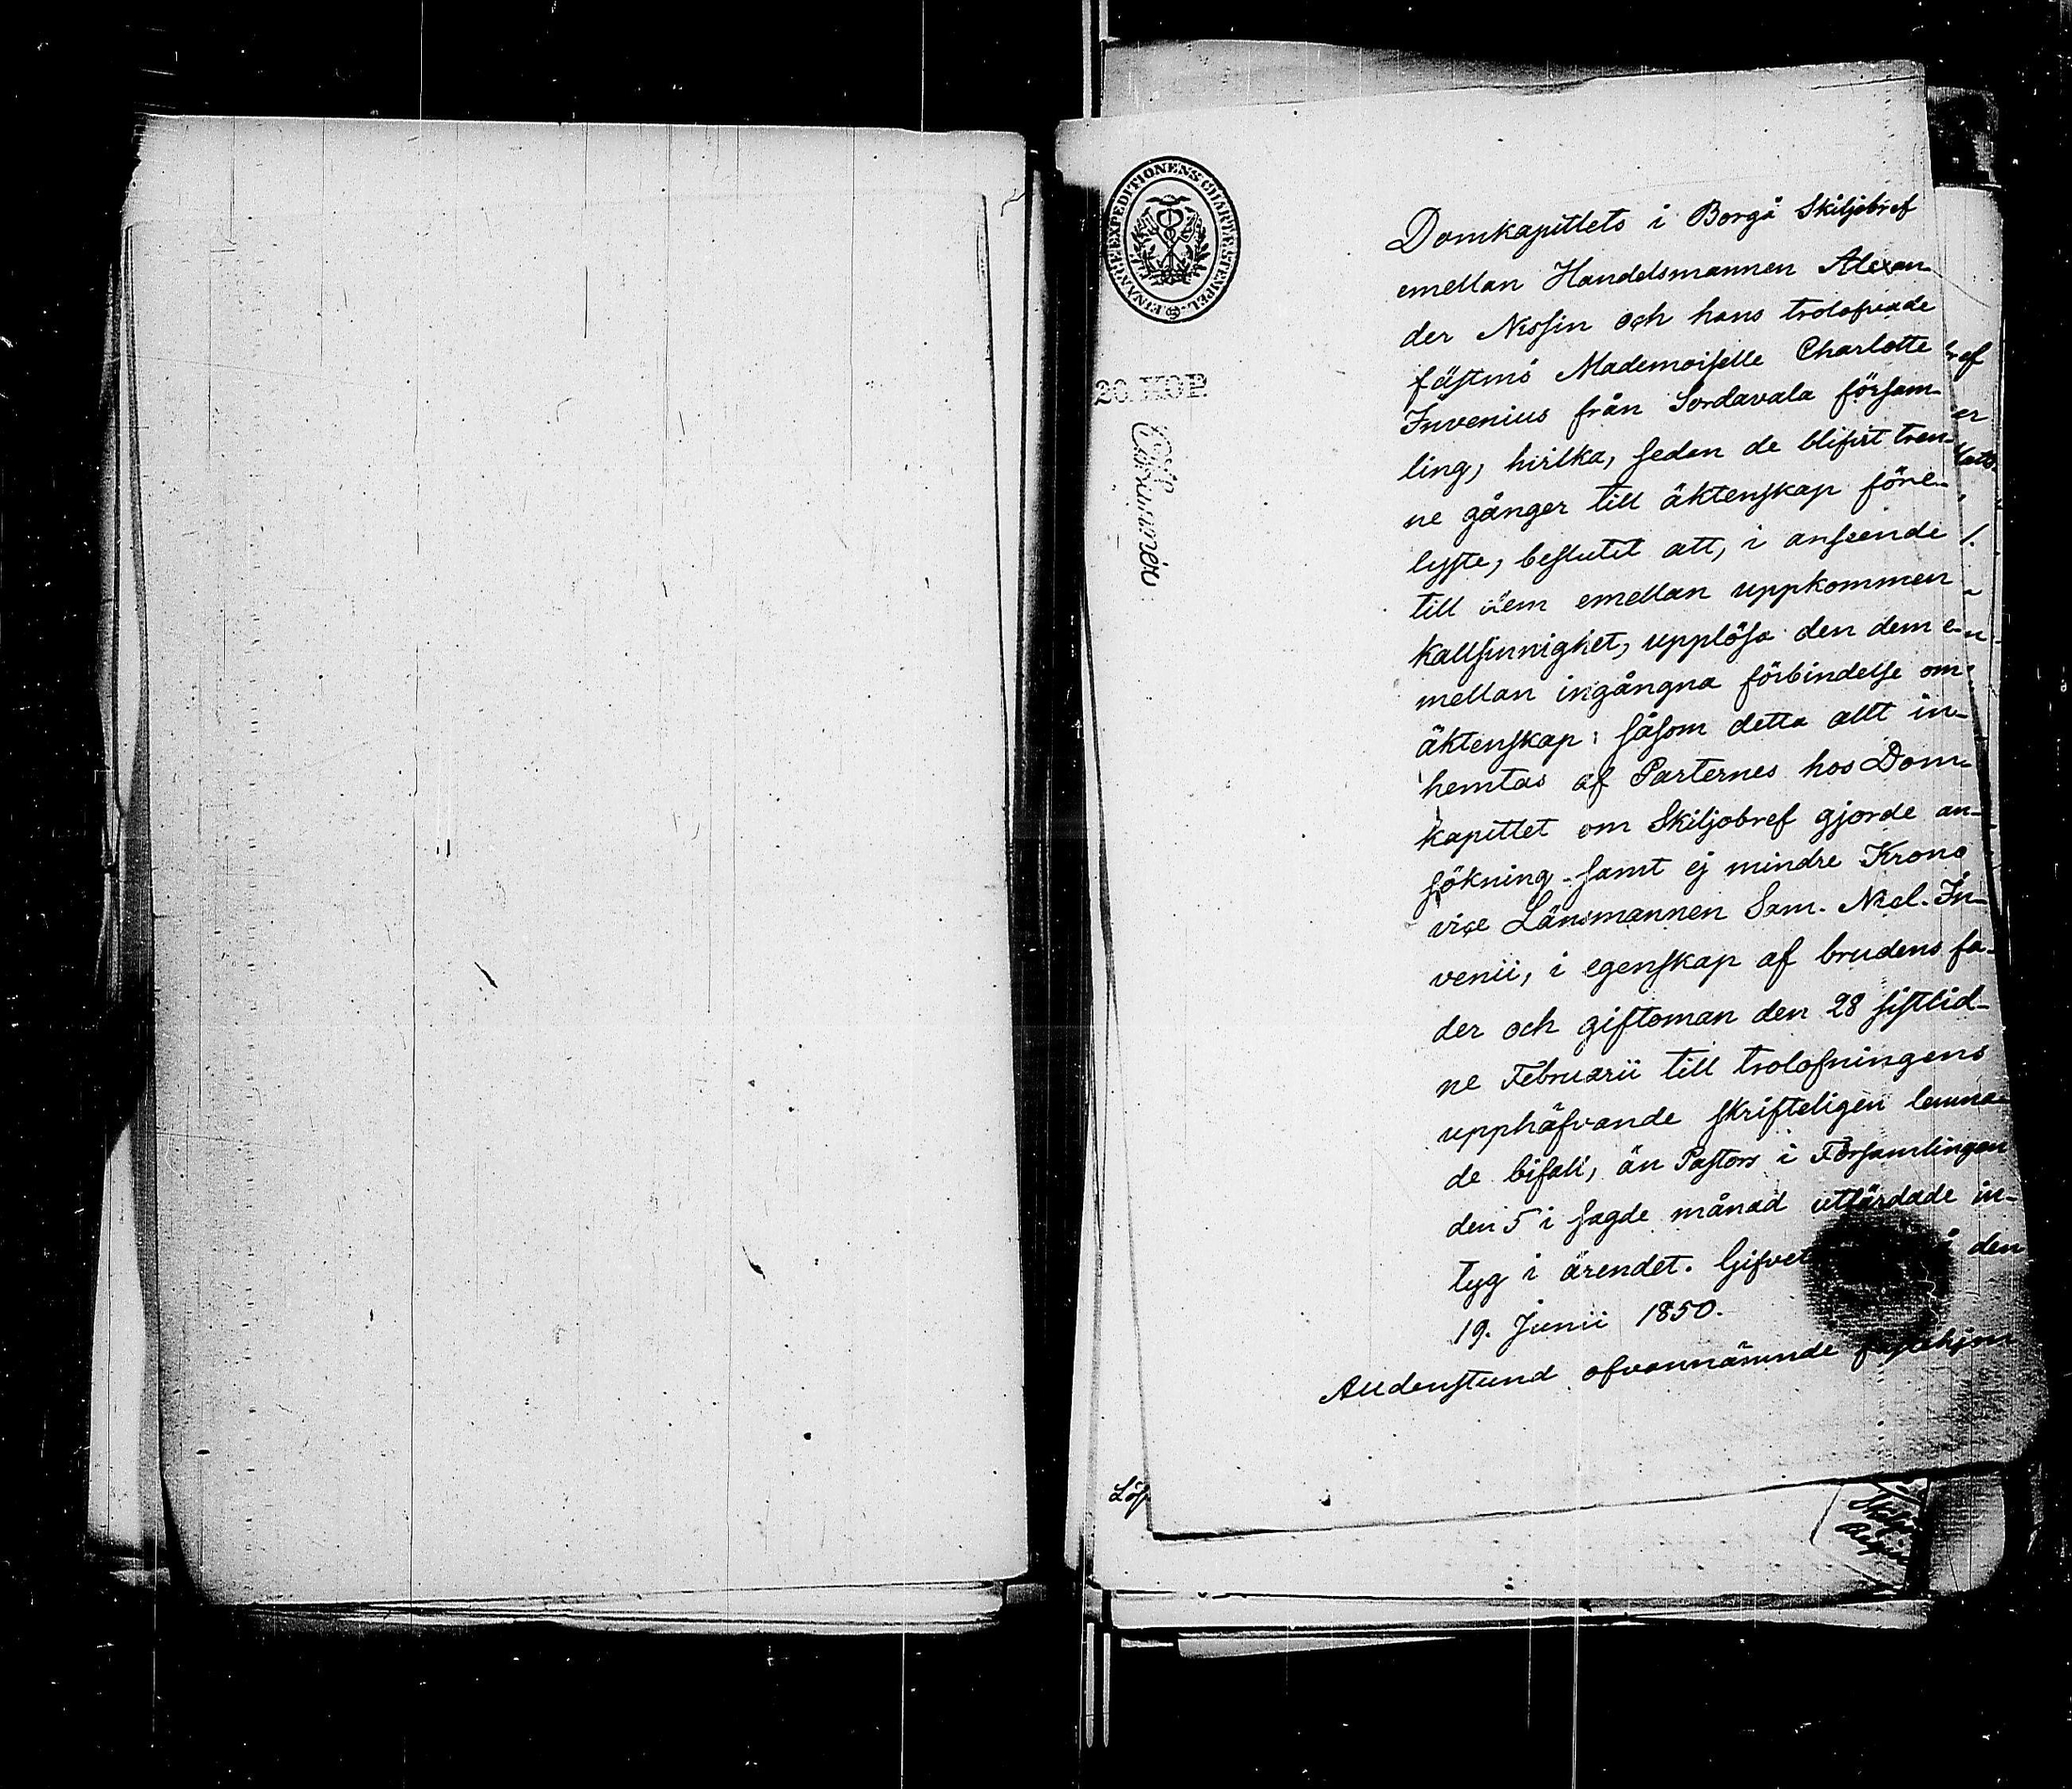 FINANCE EXPEDITIONENS CHARTÆ STEMPEL
20. KOP.
Domkapitlets i Borgå Skiljobref
emellan Handelsmannen Alexan-
der Nissin och hans trolofvade
fästmö Mademoiselle Charlotte
Invenius från Sordavala försam-
ling, hvilka, sedan de blifvit tren-
ne gånger till äktenskap före-
lyste, beslutit att, i anseende
till dem emellan uppkommen
kallsinnighet, upplösa den dem e-
mellan ingångna förbindelse om
äktenskap; såsom detta allt in-
hemtas af Parternes hos Dom-
kapitlet om Skiljobref gjorde an-
sökning samt ej mindre Krono
vice Länsmannen Sam. Nicl. In-
venii, i egenskap af brudens fa-
der och giftoman den 28 sistlid-
ne Februarii till trolofningens
upphäfvande skrifteligen lemna-
de bifall, än Pastors i Församlingen
den 5 i sagde månad utfärdade in-
tyg i ärendet. Gifvet å den
19. Junii 1850.
Alldenstund ofvannämnde
Löf